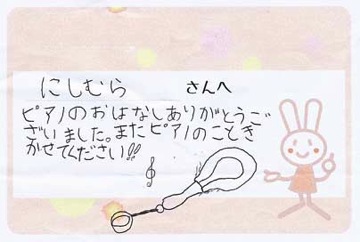 にしむら さんへ
ピアノのおはなしありがとうご
ざいました。またピアノのこときか
せてください!!